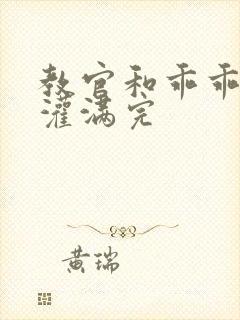 教官和乖乖
灌满完
黄瑞